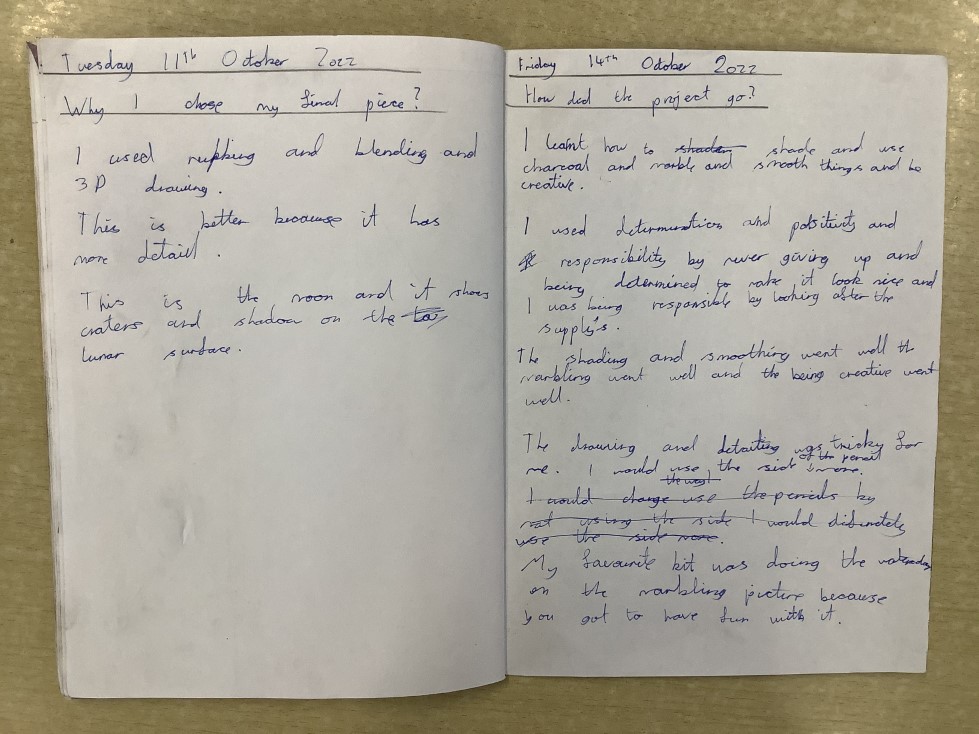 Tuesday 11th October 2022
Why I chose my final piece?
I used rubbing and blending and
3D drawing.
This is better because it has
more detail.
This is the moon and it shows
craters and shadow on the
lunar surface.
Friday 14th October 2022
How did the project go?
I learnt how to shader shade and use
charcoal and marble and smooth things and be
creative.
I used determination and positivity and
responsibility by never giving up and
being determined to make it look nice and
I was being responsible by looking after the
supply's.
The shading and smoothing went well th
marbling went well and the being creative went
well.
The drawing and detailing was tricky for
me. I would use the side of the pencil more.
the way I
I would change use the pencils by
not using the side I would difinetely
use the side more.
My favourite bit was doing the
on the marbling picture because
you got to have fun with it.